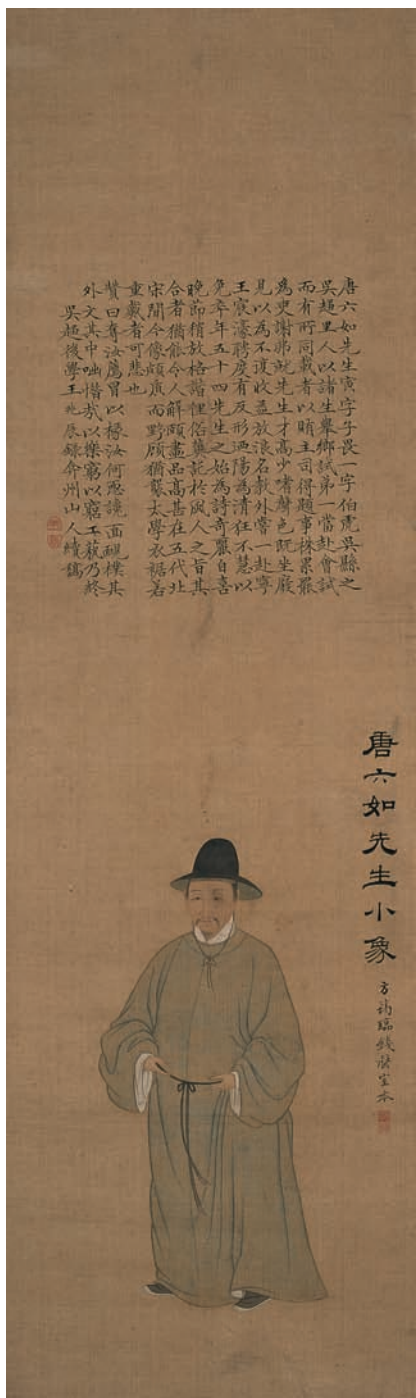 唐六如先生寅字子畏一字伯虎吳縣之
吳趨里人以諸生舉鄉試第一當赴會試
而有所同載者以賄主司得題事株累罷
為吏謝弗就先生才高少嗜聲色既坐廢
見以為不復收益放浪名教外嘗一赴寧
王宸濠聘度有反形迺陽為清狂不慧以
免卒年五十四先生之始為詩奇麗自喜
晚節稍放格諧俚俗冀託於風人之旨其
合者猶能令人解頤畫品高甚在五代北
宋間今像頗質而野顧猶襲太學衣裾若
重載者可悲也
贊曰奪汝廌冒以椽汝何恧譊面靦樸其
外文其中咄惜哉以樂窮以窮工藪乃終
吳趨後學王兆辰錄弇州山人續稿
唐六如先生小象
方臨錢磬室本